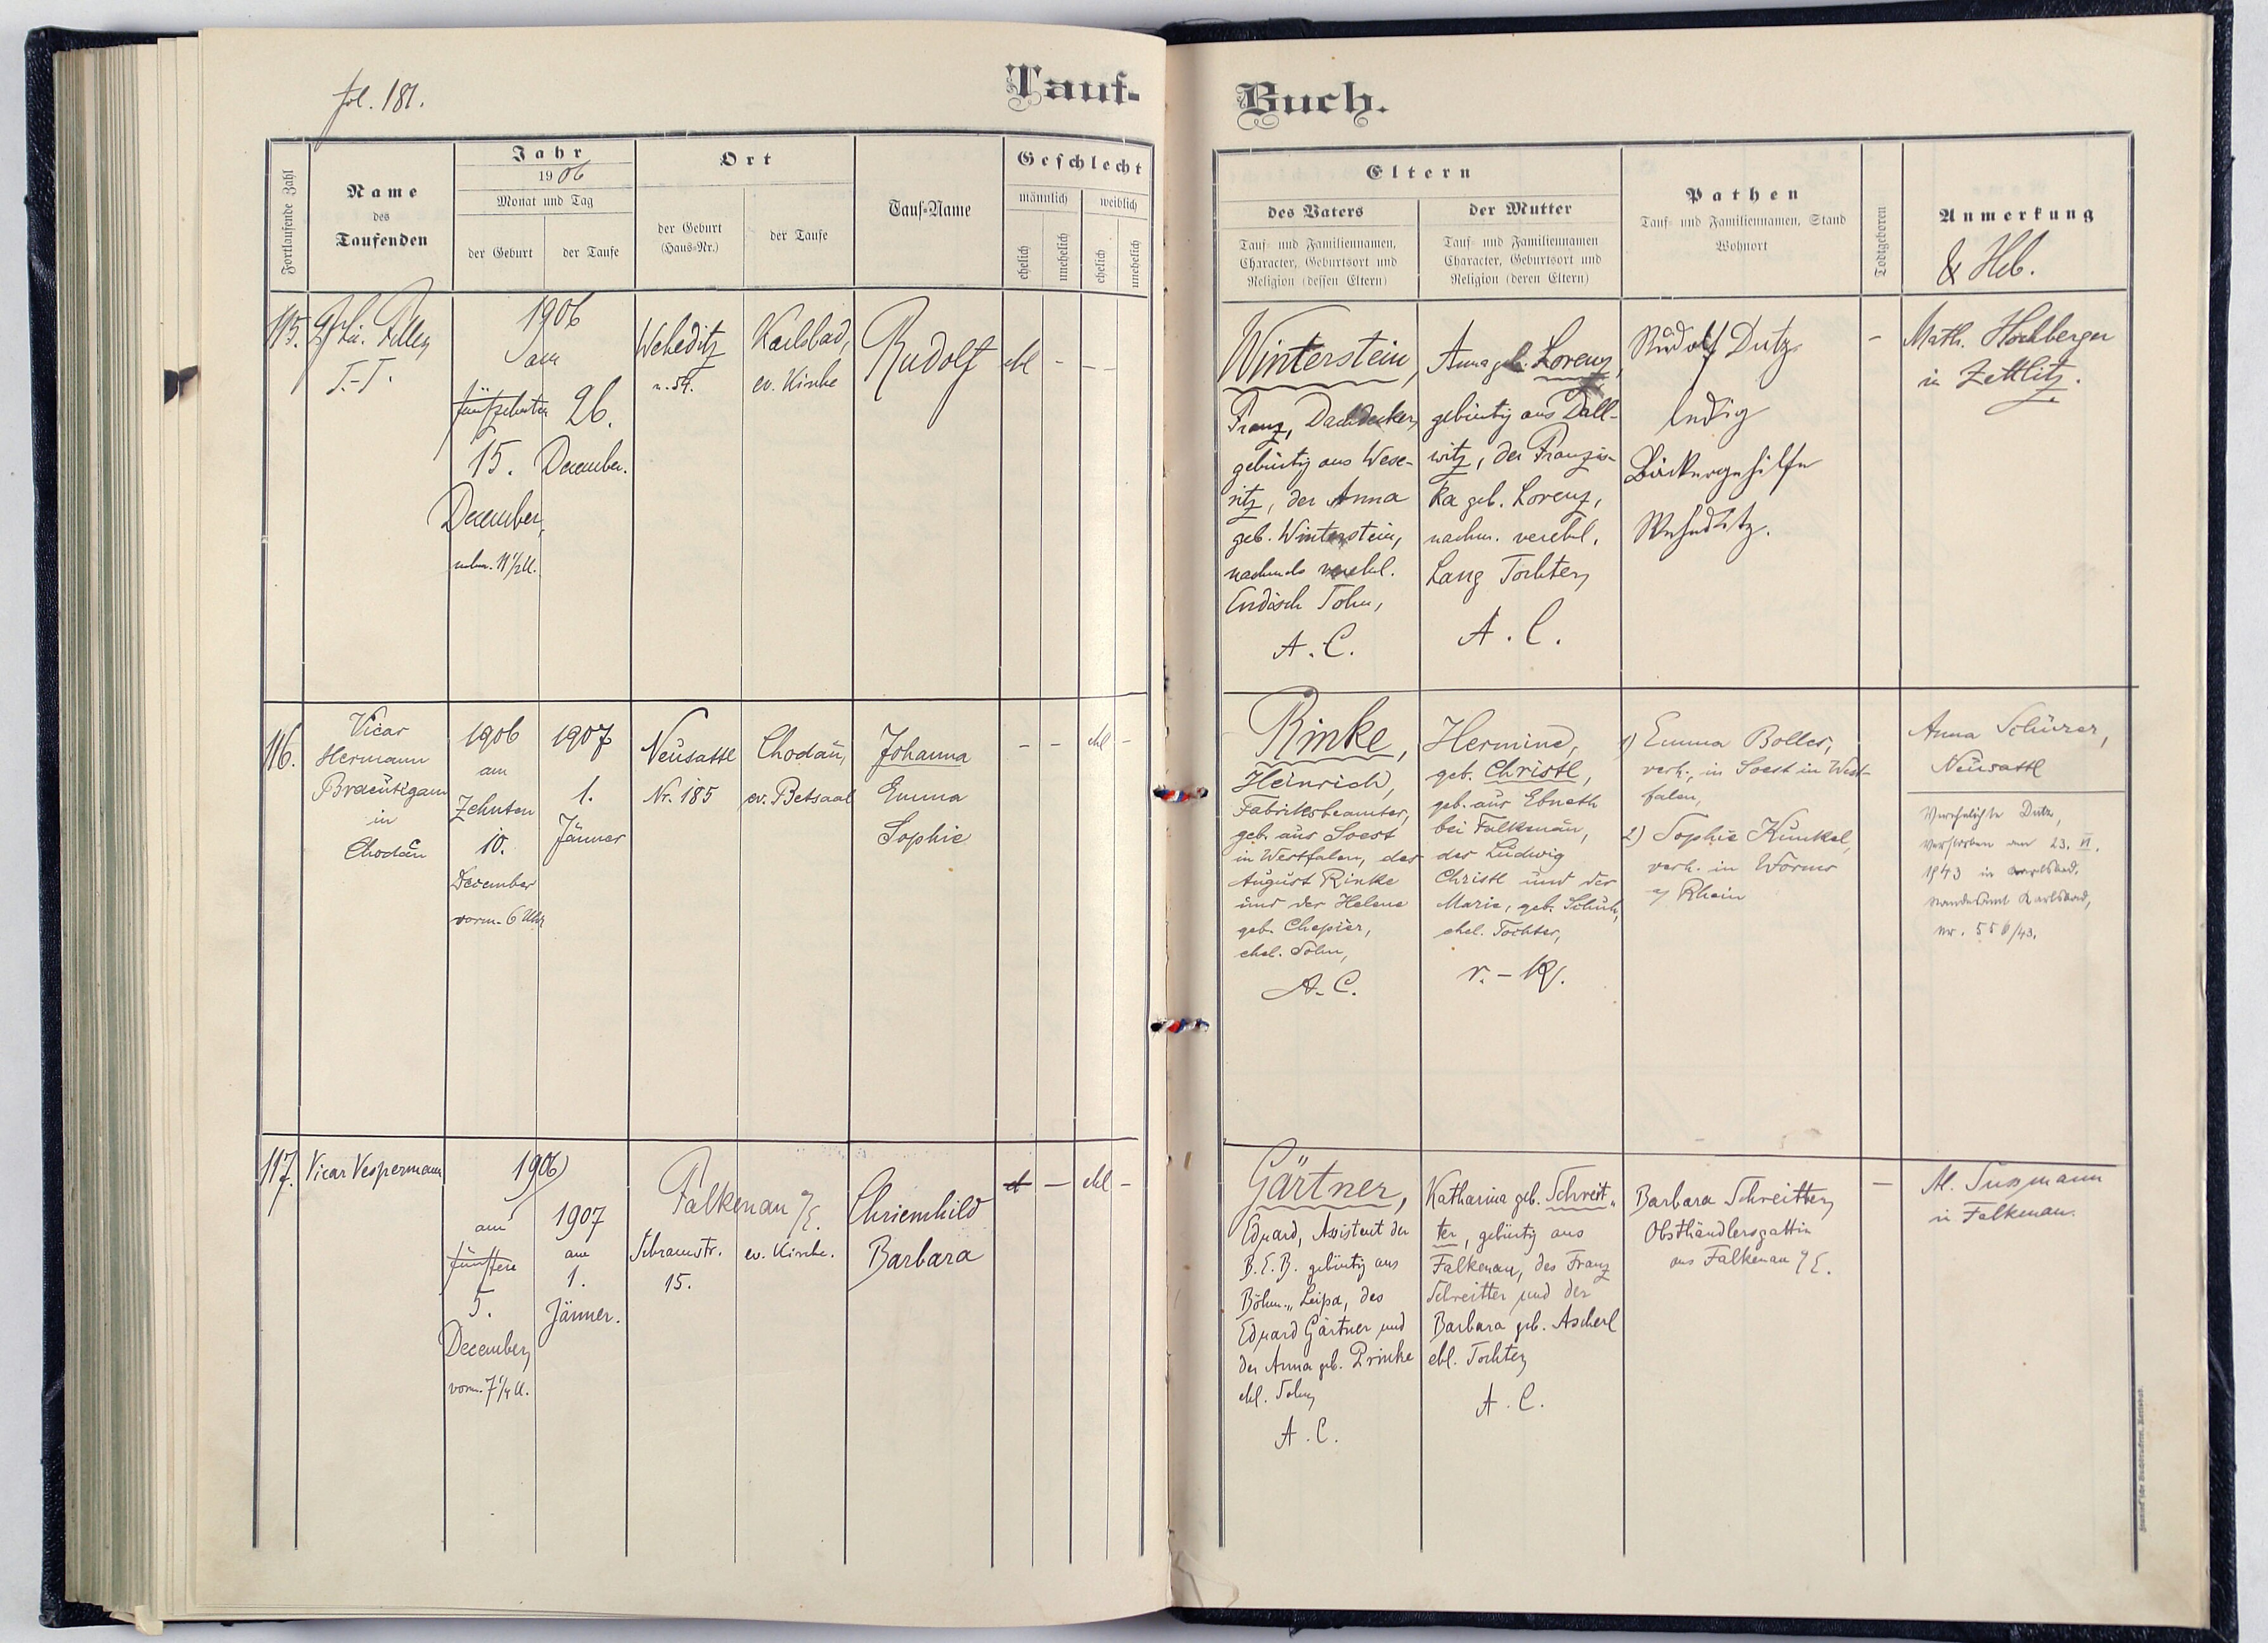 fol. 181.
Tauf-
Buch.
Fortlaufende Zahl
Name
des
Taufenden
Jahr
1906
Monat und Tag
der Geburt
der Taufe
Ort
der Geburt
(Haus-Nr.)
der Taufe
Tauf-Name
Geschlecht
männlich
weiblich
ehelich
unehelich
ehelich
unehelich
Eltern
des Vaters
Tauf- und Familiennamen,
Character, Geburtsort und
Religion (dessen Eltern)
der Mutter
Tauf- und Familiennamen
Character, Geburtsort und
Religion (deren Eltern)
Pathen
Tauf- und Familiennamen, Stand
Wohnort
Todtgeboren
Anmerkung
& Heb.
115.
T.-T.
1906
am
fünfzehnten
15.
December,
11 1/2 U.
26.
December.
Weheditz
n. 54.
Karlsbad,
ev. Kirche
Rudolf
ehl
-
-
-
Winterstein,
Franz, Dachdecker,
gebürtig aus Wese-
ritz, der Anna
geb. Winterstein,
nachmals verehl.
Endisch Sohn,
A. C.
Anna geb. Lorenz,
gebürtig aus Dall-
witz, der Franzis-
ka geb. Lorenz,
nachm. verehl.
Lang Tochter,
A. C.
Rudolf Dutz
ledig
Bäckergehilfe
Weheditz.
-
Math. Hochberger
in Zettlitz.
116.
Vicar
Hermann
Bräutigam
in
Chodau
1906
am
zehnten
10.
December
vorm. 6 Uhr
1907
1.
Jänner
Neusattl
Nr. 185
Chodau,
ev. Betsaal
Johanna
Emma
Sophie
-
-
ehl
-
Rinke,
Heinrich,
Fabriksbeamter,
geb. aus Soest
in Westfalen, des
August Rinke
und der Helene
geb. Chepier,
ehel. Sohn,
A. C.
Hermine,
geb. Christl,
geb. aus Ebmeth
bei Falkenau,
des Ludwig
Christl und der
Marie, geb. Schuh,
ehel. Tochter,
r. - k.
1) Emma Bolles,
verh., in Soest in West-
falen,
2) Sophie Kunkel,
verh. in Worms
a/ Rhein
Anna Schürer,
Neusattl
Verehelichte Dutz,
verstorben am 23. VI.
1943 in Karlsbad.
Standesamt Karlsbad,
Nr. 556/43.
117.
Vicar Vespermann
1906
am
fünften
5.
December,
vorm. 7 1/4 U.
1907
am
1.
Jänner.
Falkenau a/E.
Schramstr.
15.
ev. Kirche.
Chriemhild
Barbara
-
ehl
-
Gärtner,
Eduard, Assistent der
B.E.B. gebürtig aus
Böhm.-Leipa, des
Eduard Gärtner und
der Anna geb. Prinke
ehl. Sohn,
A. C.
Katharina geb. Schreit-
ter, gebürtig aus
Falkenau, des Franz
Schreitter und der
Barbara geb. Ascherl
ehl. Tochter,
A. C.
Barbara Schreitter,
Obsthändlersgattin
aus Falkenau a/E.
-
in Falkenau.